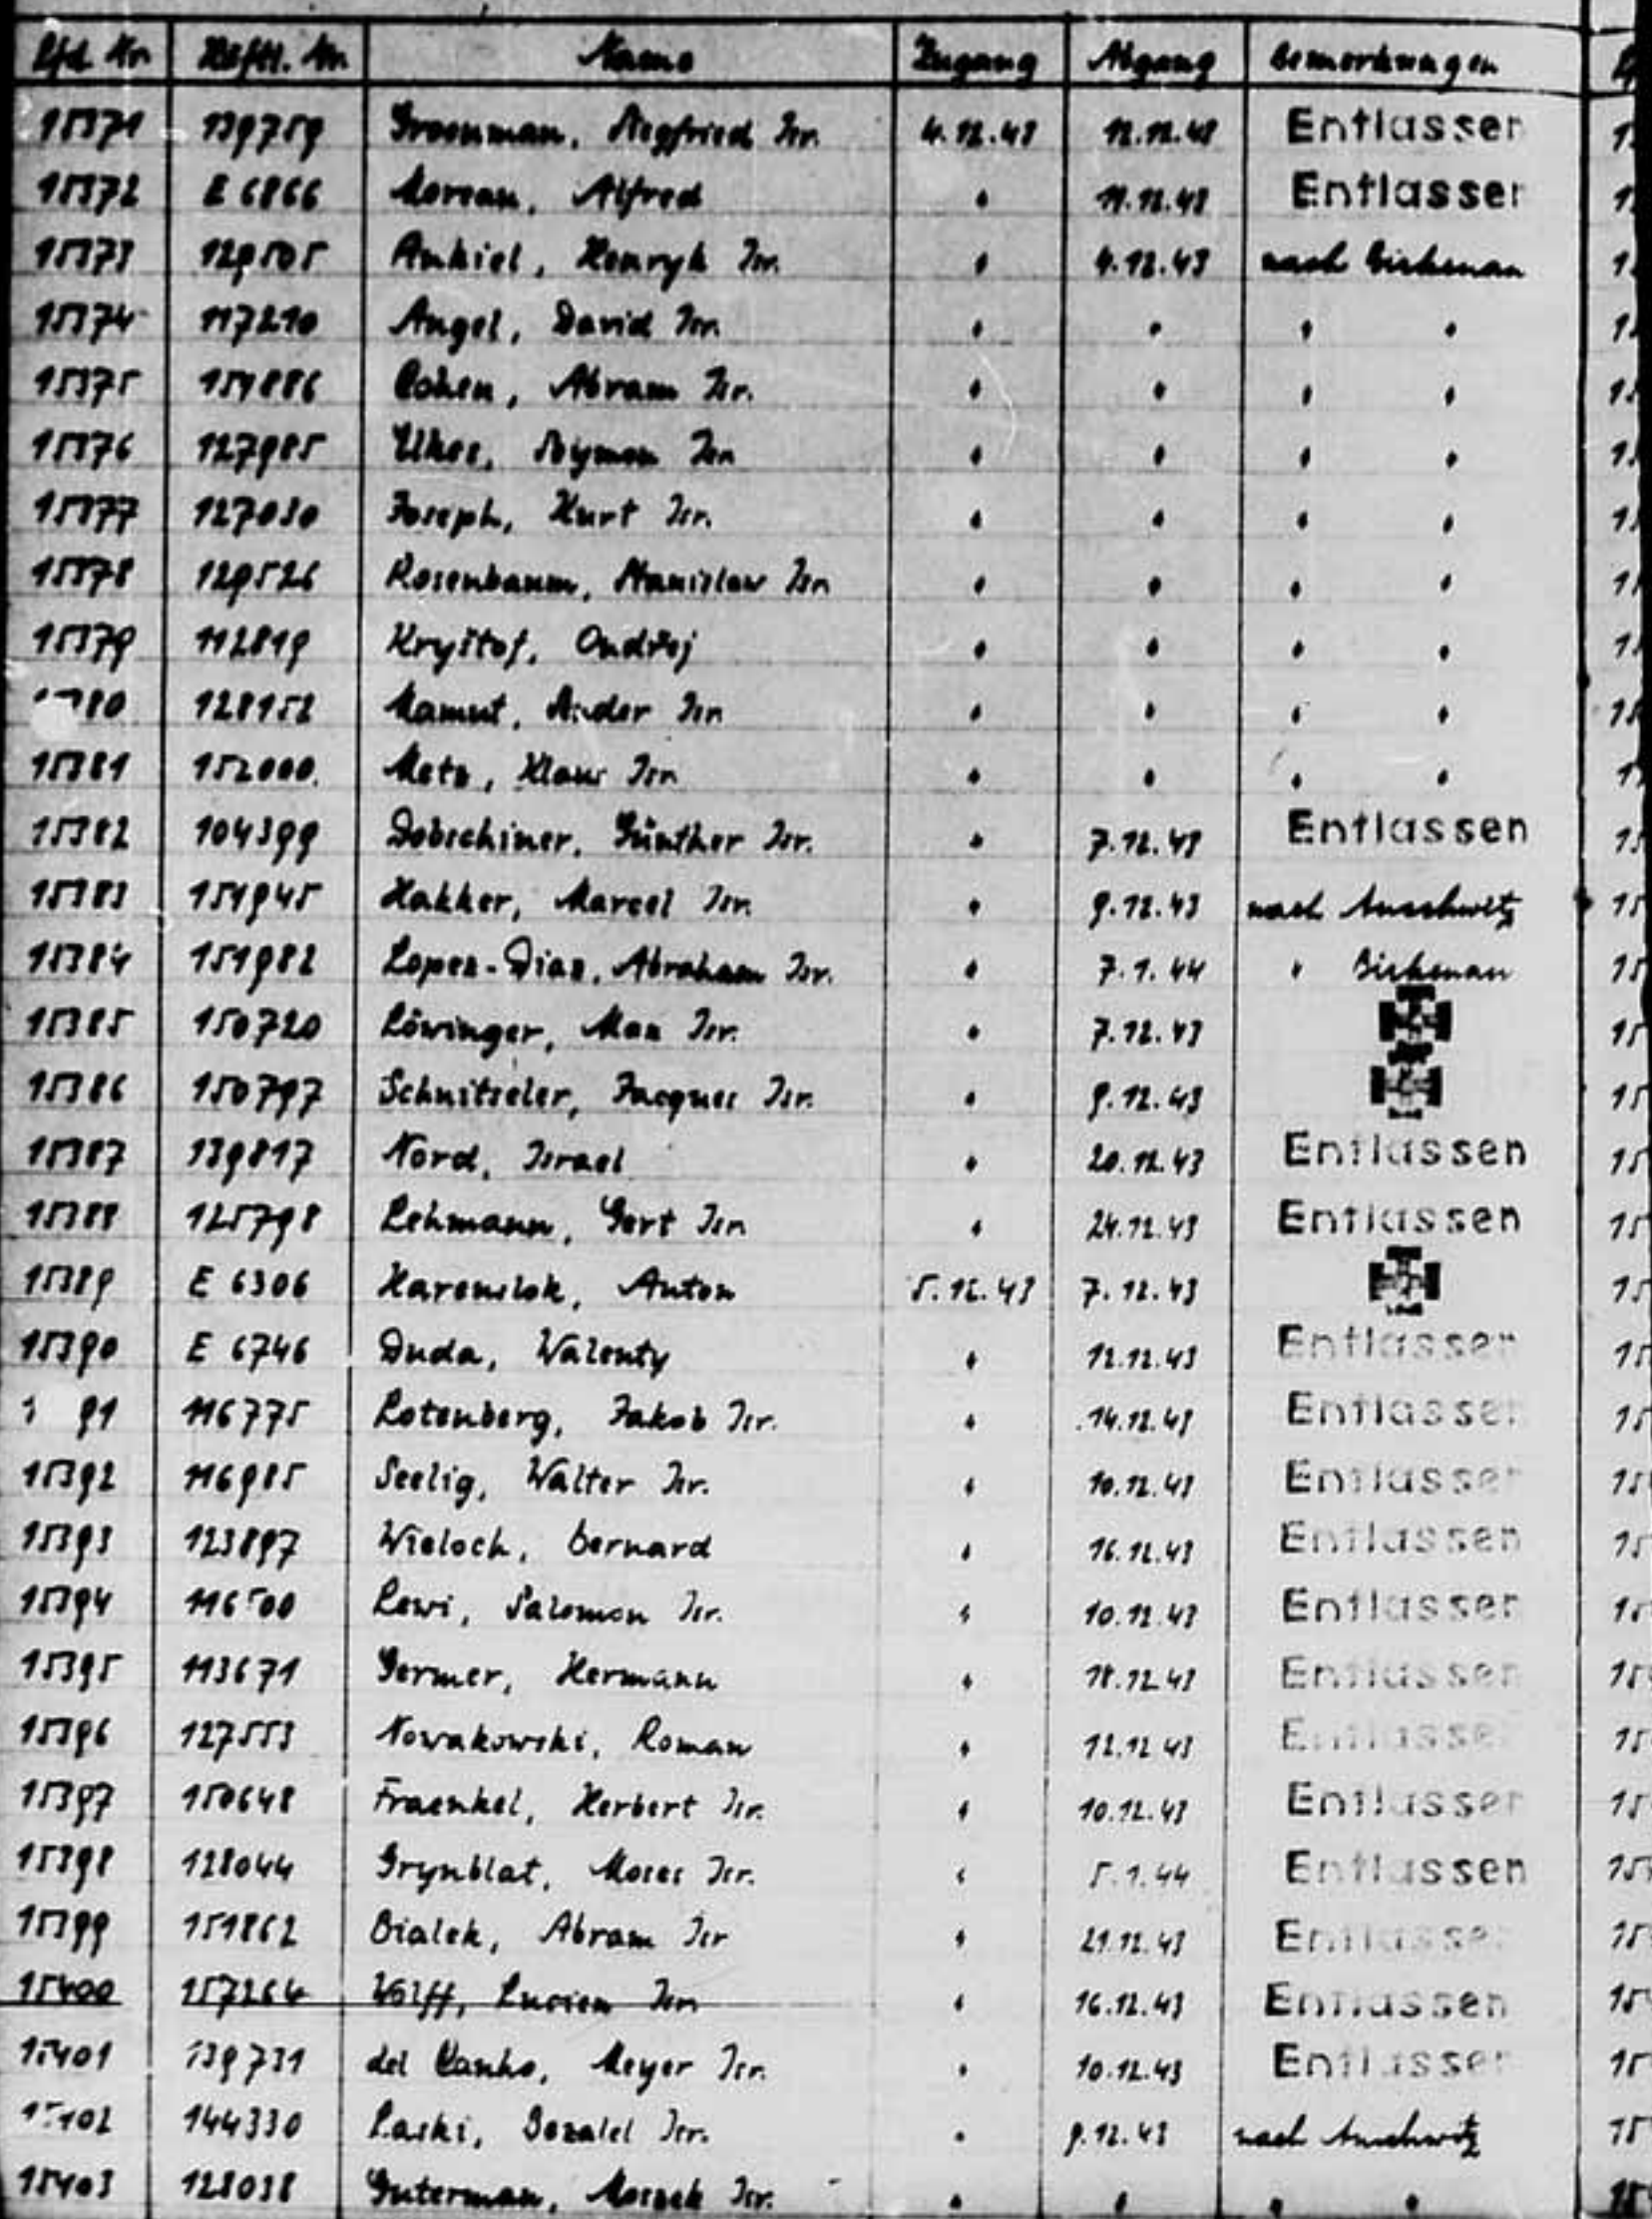 Lfd. Nr. Häftl. Nr. Name Zugang Abgang Bemerkungen
15371 139759 Groenman, Siegfried Isr. 4.12.43 12.12.43 Entlassen
15372 E 6866 Morean, Alfred " 11.12.43 Entlassen
15373 129505 Ankiel, Henryk Isr. " 4.12.43 nach Birkenau
15374 117210 Angel, David Isr. " " " "
15375 151886 Cohen, Abram Isr. " " " "
15376 127985 Elkes, Szymon Isr. " " " "
15377 127030 Joseph, Kurt Isr. " " " "
15378 129526 Rosenbaum, Stanislaw Isr. " " " "
15379 112819 Kryštof, Ondřej " " " "
80 128152 Mamut, Isr. " " " "
15381 152000. Metz, Klaus Isr. " " " "
15382 104399 Dobschiner, Günther Isr. " 7.12.43 Entlassen
15383 151945 Hakker, Marcel Isr. " 9.12.43 nach Auschwitz
15384 151982 Lopez-Diaz, Abraham Isr. " 7.1.44 " Birkenau
15385 150720 Löwinger, Max Isr. " 7.12.43
15386 150797 Schnitzeler, Jacques Isr. " 9.12.43
15387 139817 Nord, Israel " 20.12.43 Entlassen
15388 125798 Lehmann, Gert Isr. " 24.12.43 Entlassen
15389 E 6306 Anton 5.12.43 7.12.43
15390 E 6746 Duda, Walenty " 12.12.43 Entlassen
91 116775 Rotenberg, Jakob Isr. " 14.12.43 Entlassen
15392 116985 Seelig, Walter Isr. " 10.12.43 Entlassen
15393 123897 Wieloch, Bernard " 16.12.43 Entlassen
15394 116500 Lewi, Salomon Isr. " 10.12.43 Entlassen
15395 113671 Germer, Hermann " 18.12.43 Entlassen
15396 127553 Nowakowski, Roman " 12.12.43 Entlassen
15397 150648 Fraenkel, Herbert Isr. " 10.12.43 Entlassen
15398 128044 Grynblat, Moses Isr. " 5.1.44 Entlassen
15399 151862 Bialek, Abram Isr " 21.12.43 Entlassen
15400 157264 Wolff, Lucien Isr. " 16.12.43 Entlassen
15401 139731 del Canho, Meyer Isr. " 10.12.43 Entlassen
15402 144330 Laski, Bezalel Isr. " 9.12.43 nach Auschwitz
15403 128038 Guterman, Moszek Isr. " " " "